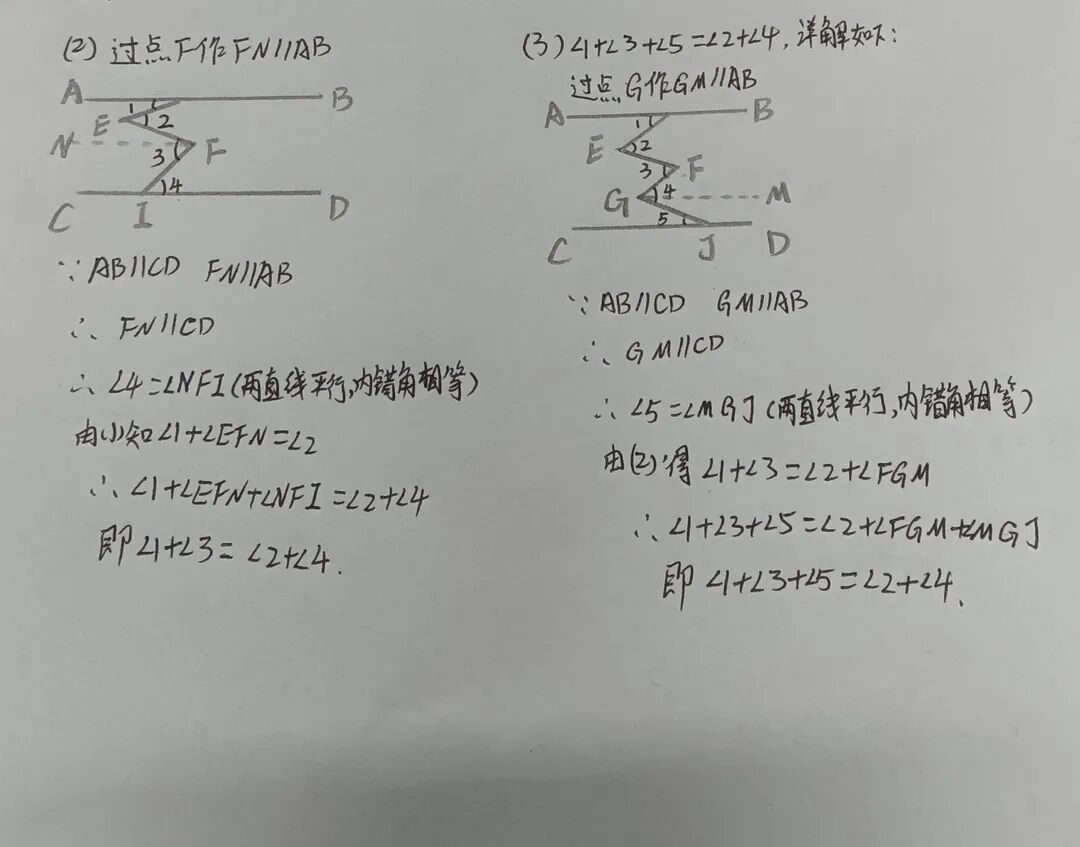 (2) 过点F作FN//AB
A
B
1
E
2
N
3
F
4
C
I
D
∵AB//CD FN//AB
∴ FN//CD
∴ ∠4=∠NFI(两直线平行,内错角相等)
由(1)知∠1+∠EFN=∠2
∴ ∠1+∠EFN+∠NFI=∠2+∠4
即∠1+∠3=∠2+∠4.
(3) ∠1+∠3+∠5=∠2+∠4,详解如下:
过点G作GM//AB
A
B
1
E
2
3
F
G
4
M
5
C
J
D
∵ AB//CD GM//AB
∴ GM//CD
∴ ∠5=∠MGJ(两直线平行,内错角相等)
由(2)得 ∠1+∠3=∠2+∠FGM
∴ ∠1+∠3+∠5=∠2+∠FGM+∠MGJ
即 ∠1+∠3+∠5=∠2+∠4.